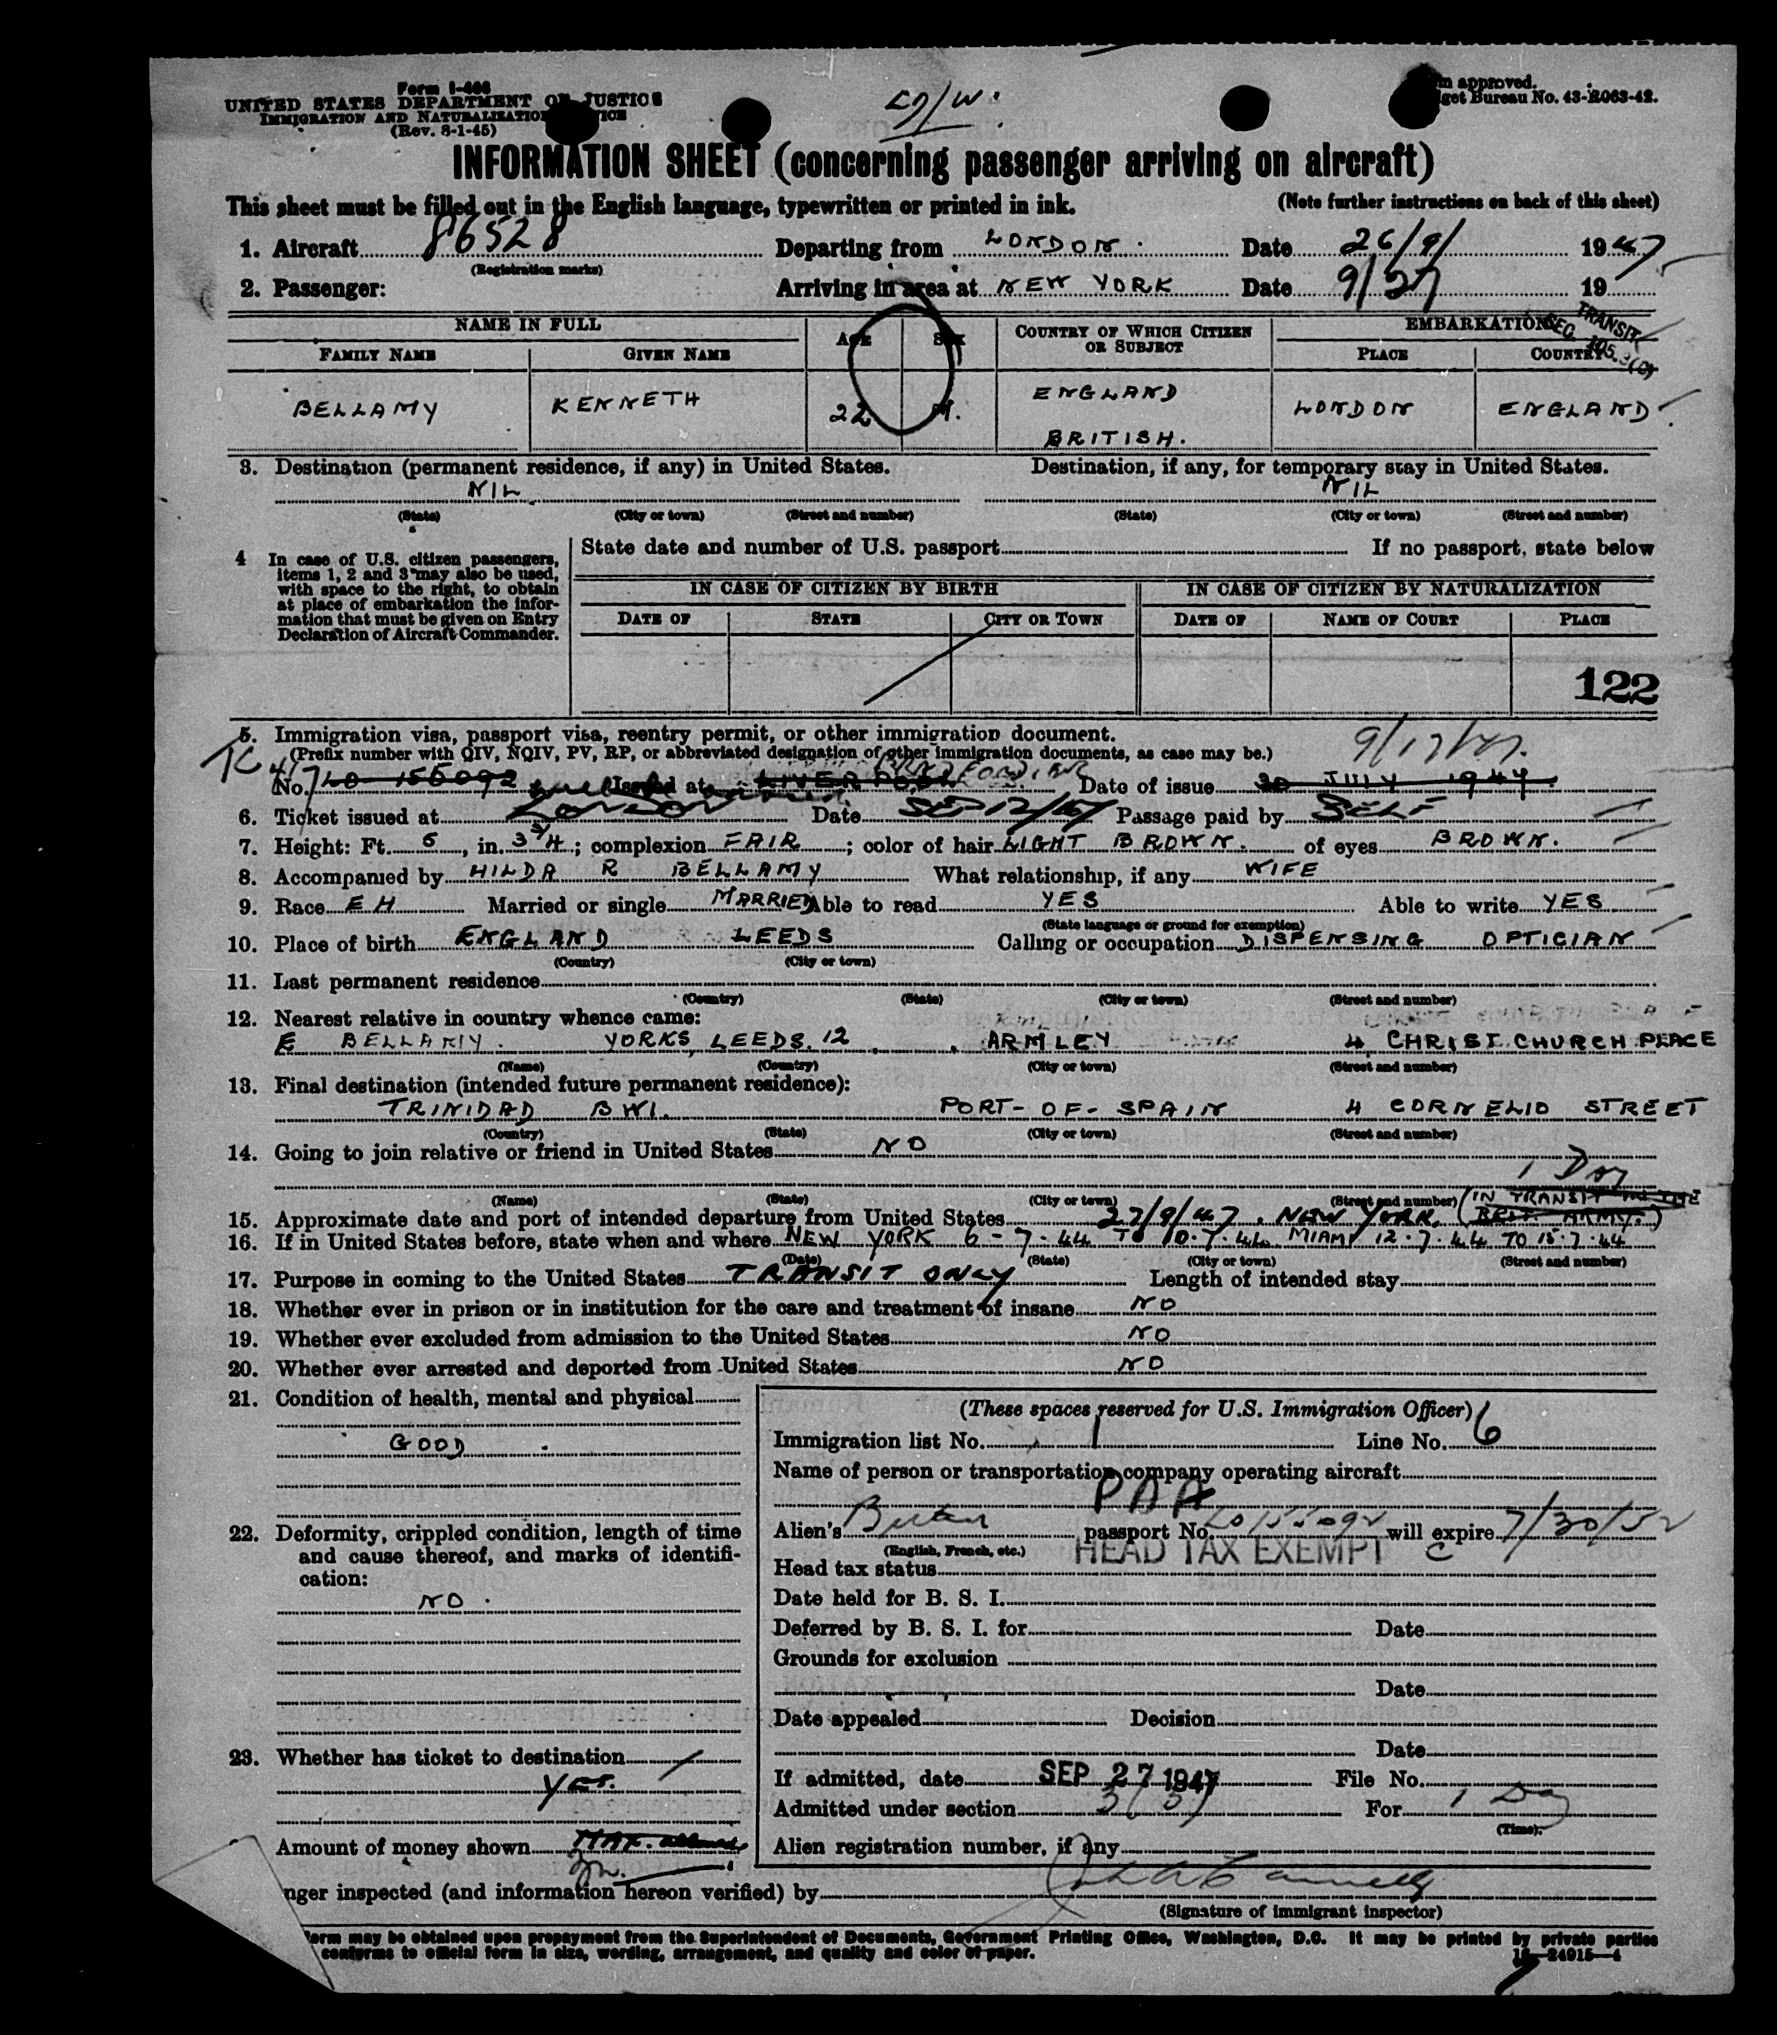 Form I-466
UNITED STATES DEPARTMENT OF JUSTICE
IMMIGRATION AND NATURALIZATION SERVICE
(Rev. 8-1-45)
approved.
get Bureau No. 43-R063-42.
INFORMATION SHEET (concerning passenger arriving on aircraft)
This sheet must be filled out in the English language, typewritten or printed in ink. (Note further instructions on back of this sheet)
1. Aircraft 86528 Departing from LONDON. Date 26/9/ 1947
(Registration marks)
2. Passenger: Arriving in area at NEW YORK Date 9/27 19
TRANSIT
SEC. 105.3(C)
NAME IN FULL AGE SEX COUNTRY OF WHICH CITIZEN OR SUBJECT EMBARKATION
FAMILY NAME GIVEN NAME PLACE COUNTRY
BELLAMY KENNETH 22 M. ENGLAND BRITISH. LONDON ENGLAND
3. Destination (permanent residence, if any) in United States. Destination, if any, for temporary stay in United States.
NIL NIL
(State) (City or town) (Street and number) (State) (City or town) (Street and number)
4 In case of U.S. citizen passengers, items 1, 2 and 3 may also be used, with space to the right, to obtain at place of embarkation the information that must be given on Entry Declaration of Aircraft Commander.
State date and number of U.S. passport If no passport, state below
IN CASE OF CITIZEN BY BIRTH IN CASE OF CITIZEN BY NATURALIZATION
DATE OF STATE CITY OR TOWN DATE OF NAME OF COURT PLACE
122
5. Immigration visa, passport visa, reentry permit, or other immigration document.
(Prefix number with QIV, NQIV, PV, RP, or abbreviated designation of other immigration documents, as case may be.) 9/17/47.
No. LO 155092 Issued at LIVERPOOL Date of issue 30 JULY 1947.
6. Ticket issued at London Date SEP 12/47 Passage paid by SELF
7. Height: Ft. 5, in. 3 3/4; complexion FAIR; color of hair LIGHT BROWN. of eyes BROWN.
8. Accompanied by HILDA R BELLAMY What relationship, if any WIFE
9. Race EH Married or single MARRIED Able to read YES Able to write YES
(State language or ground for exemption)
10. Place of birth ENGLAND LEEDS Calling or occupation DISPENSING OPTICIAN
(Country) (City or town)
11. Last permanent residence
(Country) (State) (City or town) (Street and number)
12. Nearest relative in country whence came:
E BELLAMY. YORKS, LEEDS. 12 ARMLEY 4 CHRIST CHURCH PLACE
(Name) (Country) (City or town) (Street and number)
13. Final destination (intended future permanent residence):
TRINIDAD BWI. PORT-OF-SPAIN 4 CORNELIO STREET
(Country) (State) (City or town) (Street and number)
14. Going to join relative or friend in United States NO
1 Day
(Name) (State) (City or town) (Street and number) (IN TRANSIT
15. Approximate date and port of intended departure from United States 27/9/47. NEW YORK. (BRIT. ARMY.)
16. If in United States before, state when and where NEW YORK 6-7-44 TO 10.7.44 MIAMI 12.7.44 TO 15.7.44
(Date) (State) (City or town) (Street and number)
17. Purpose in coming to the United States TRANSIT ONLY Length of intended stay
18. Whether ever in prison or in institution for the care and treatment of insane NO
19. Whether ever excluded from admission to the United States NO
20. Whether ever arrested and deported from United States NO
21. Condition of health, mental and physical
GOOD
22. Deformity, crippled condition, length of time and cause thereof, and marks of identification:
NO.
23. Whether has ticket to destination
Yes.
Amount of money shown MAX. allowed
(These spaces reserved for U.S. Immigration Officer)
Immigration list No. 1 Line No. 6
Name of person or transportation company operating aircraft
PAA
Alien's passport No. LO 155092 will expire 7/30/52
(English, French, etc.) HEAD TAX EXEMPT
Head tax status
Date held for B. S. I.
Deferred by B. S. I. for Date
Grounds for exclusion
Date
Date appealed Decision
Date
If admitted, date SEP 27 1947 File No.
Admitted under section 3(3) For 1 Day
(Time)
Alien registration number, if any
nger inspected (and information hereon verified) by
(Signature of immigrant inspector)
form may be obtained upon prepayment from the Superintendent of Documents, Government Printing Office, Washington, D.C. It may be printed by private parties
conforms to official form in size, wording, arrangement, and quality and color of paper. 16—24915-4